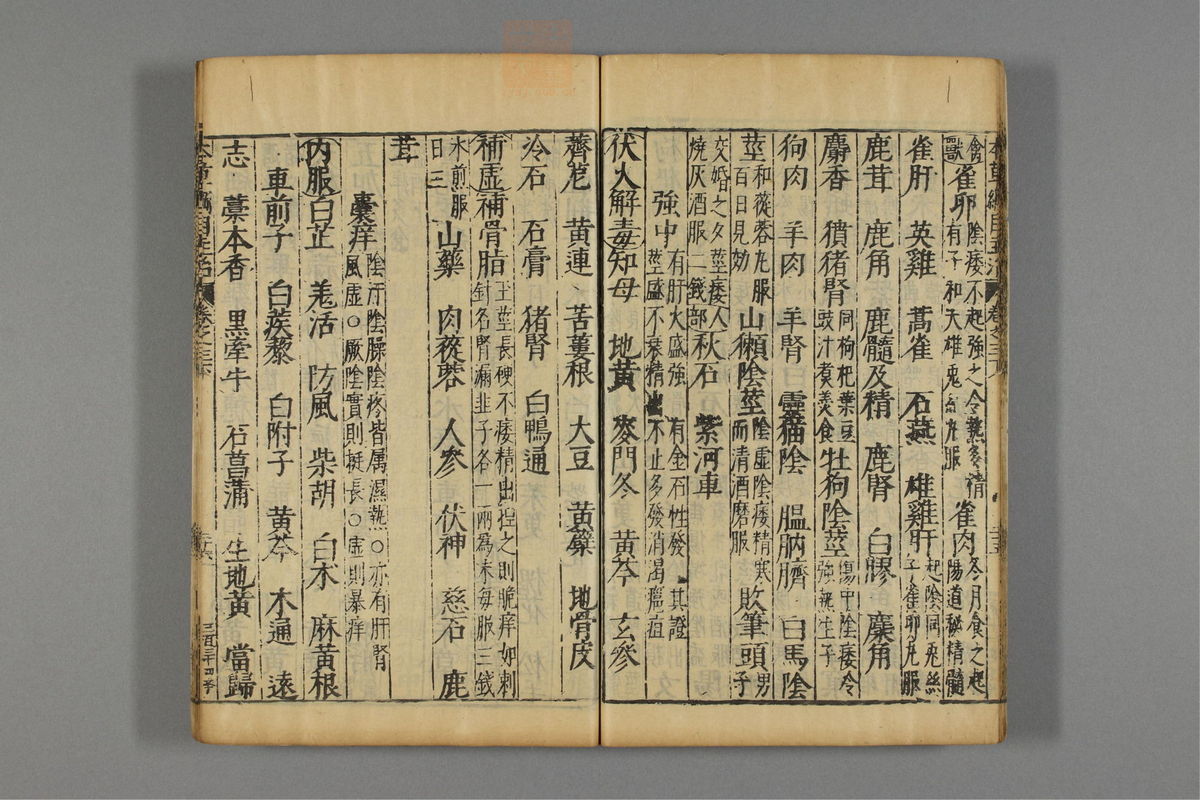 禽獸 雀卵 陰痿不起強之令熱多精有子和天雄兎絲丸服 雀肉 冬月食之起陽道秘精髓
雀肝 英雞 蒿雀 石燕 雄雞肝 起陰同兎絲子雀卵丸服
鹿茸 鹿角 鹿髓及精 鹿腎 白膠 麋角
麝香 獖猪腎 同枸杞葉豆豉汁煮羹食 牡狗陰莖 傷中陰痿令強熱生子
狗肉 羊肉 羊腎 靈猫陰 膃肭臍 白馬陰
莖 和蓯蓉丸服百日見効 山獺陰莖 陰虛陰痿精寒而清酒磨服 敗筆頭 男子
交婚之夕莖痿人燒灰酒服二錢 部 秋石 紫河車
強中 有肝火盛強 有金石性發 其證莖盛不衰精出不止多發消渴癰疽
伏火解毒 知母 地黃 麥門冬 黃芩 玄參
薺苨 黃連 苦蔞根 大豆 黃蘗 地骨皮
冷石 石膏 猪腎 白鴨通
補虛 補骨脂 主莖長硬不痿精出捏之則脆痒如刺針名腎漏韭子各一兩爲末每服三錢
水煎服日三 山藥 肉蓯蓉 人參 伏神 慈石 鹿
茸
囊痒 陰汗陰臊陰疼皆属濕熱○亦有肝腎風虛○厥陰實則挺長○虛則暴痒
內服 白芷 羌活 防風 柴胡 白朮 麻黃根
車前子 白蒺藜 白附子 黃芩 木通 遠
志 藁本香 黑牽牛 石菖蒲 生地黃 當歸